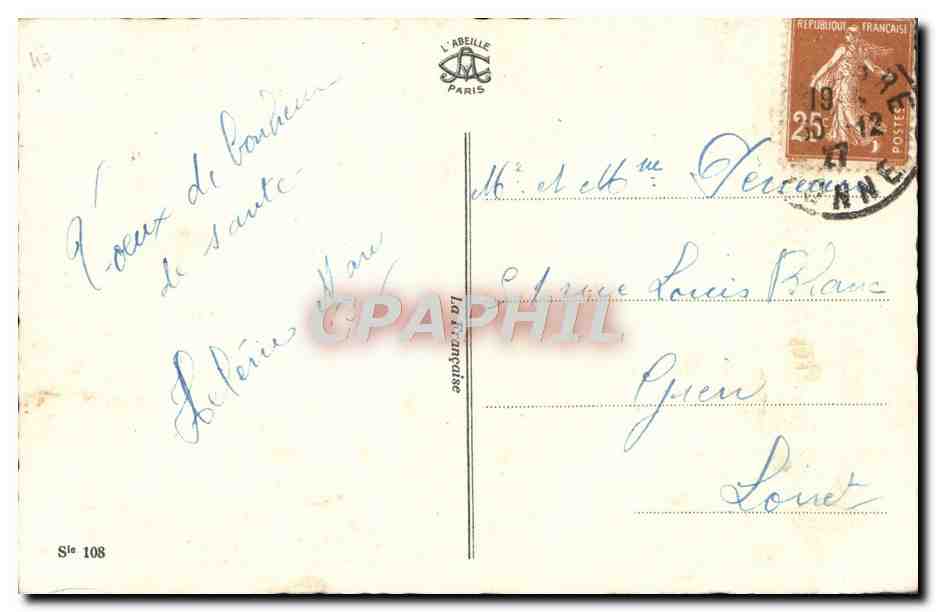 L'ABEILLE
PARIS
RÉPUBLIQUE FRANÇAISE
25c
POSTES
19
12
27
NNE
Voeux de bonheur
de santé
Mr et Mme
51 rue Louis Blanc
Gien
Loiret
La Française
CPAPHIL
Sie 108